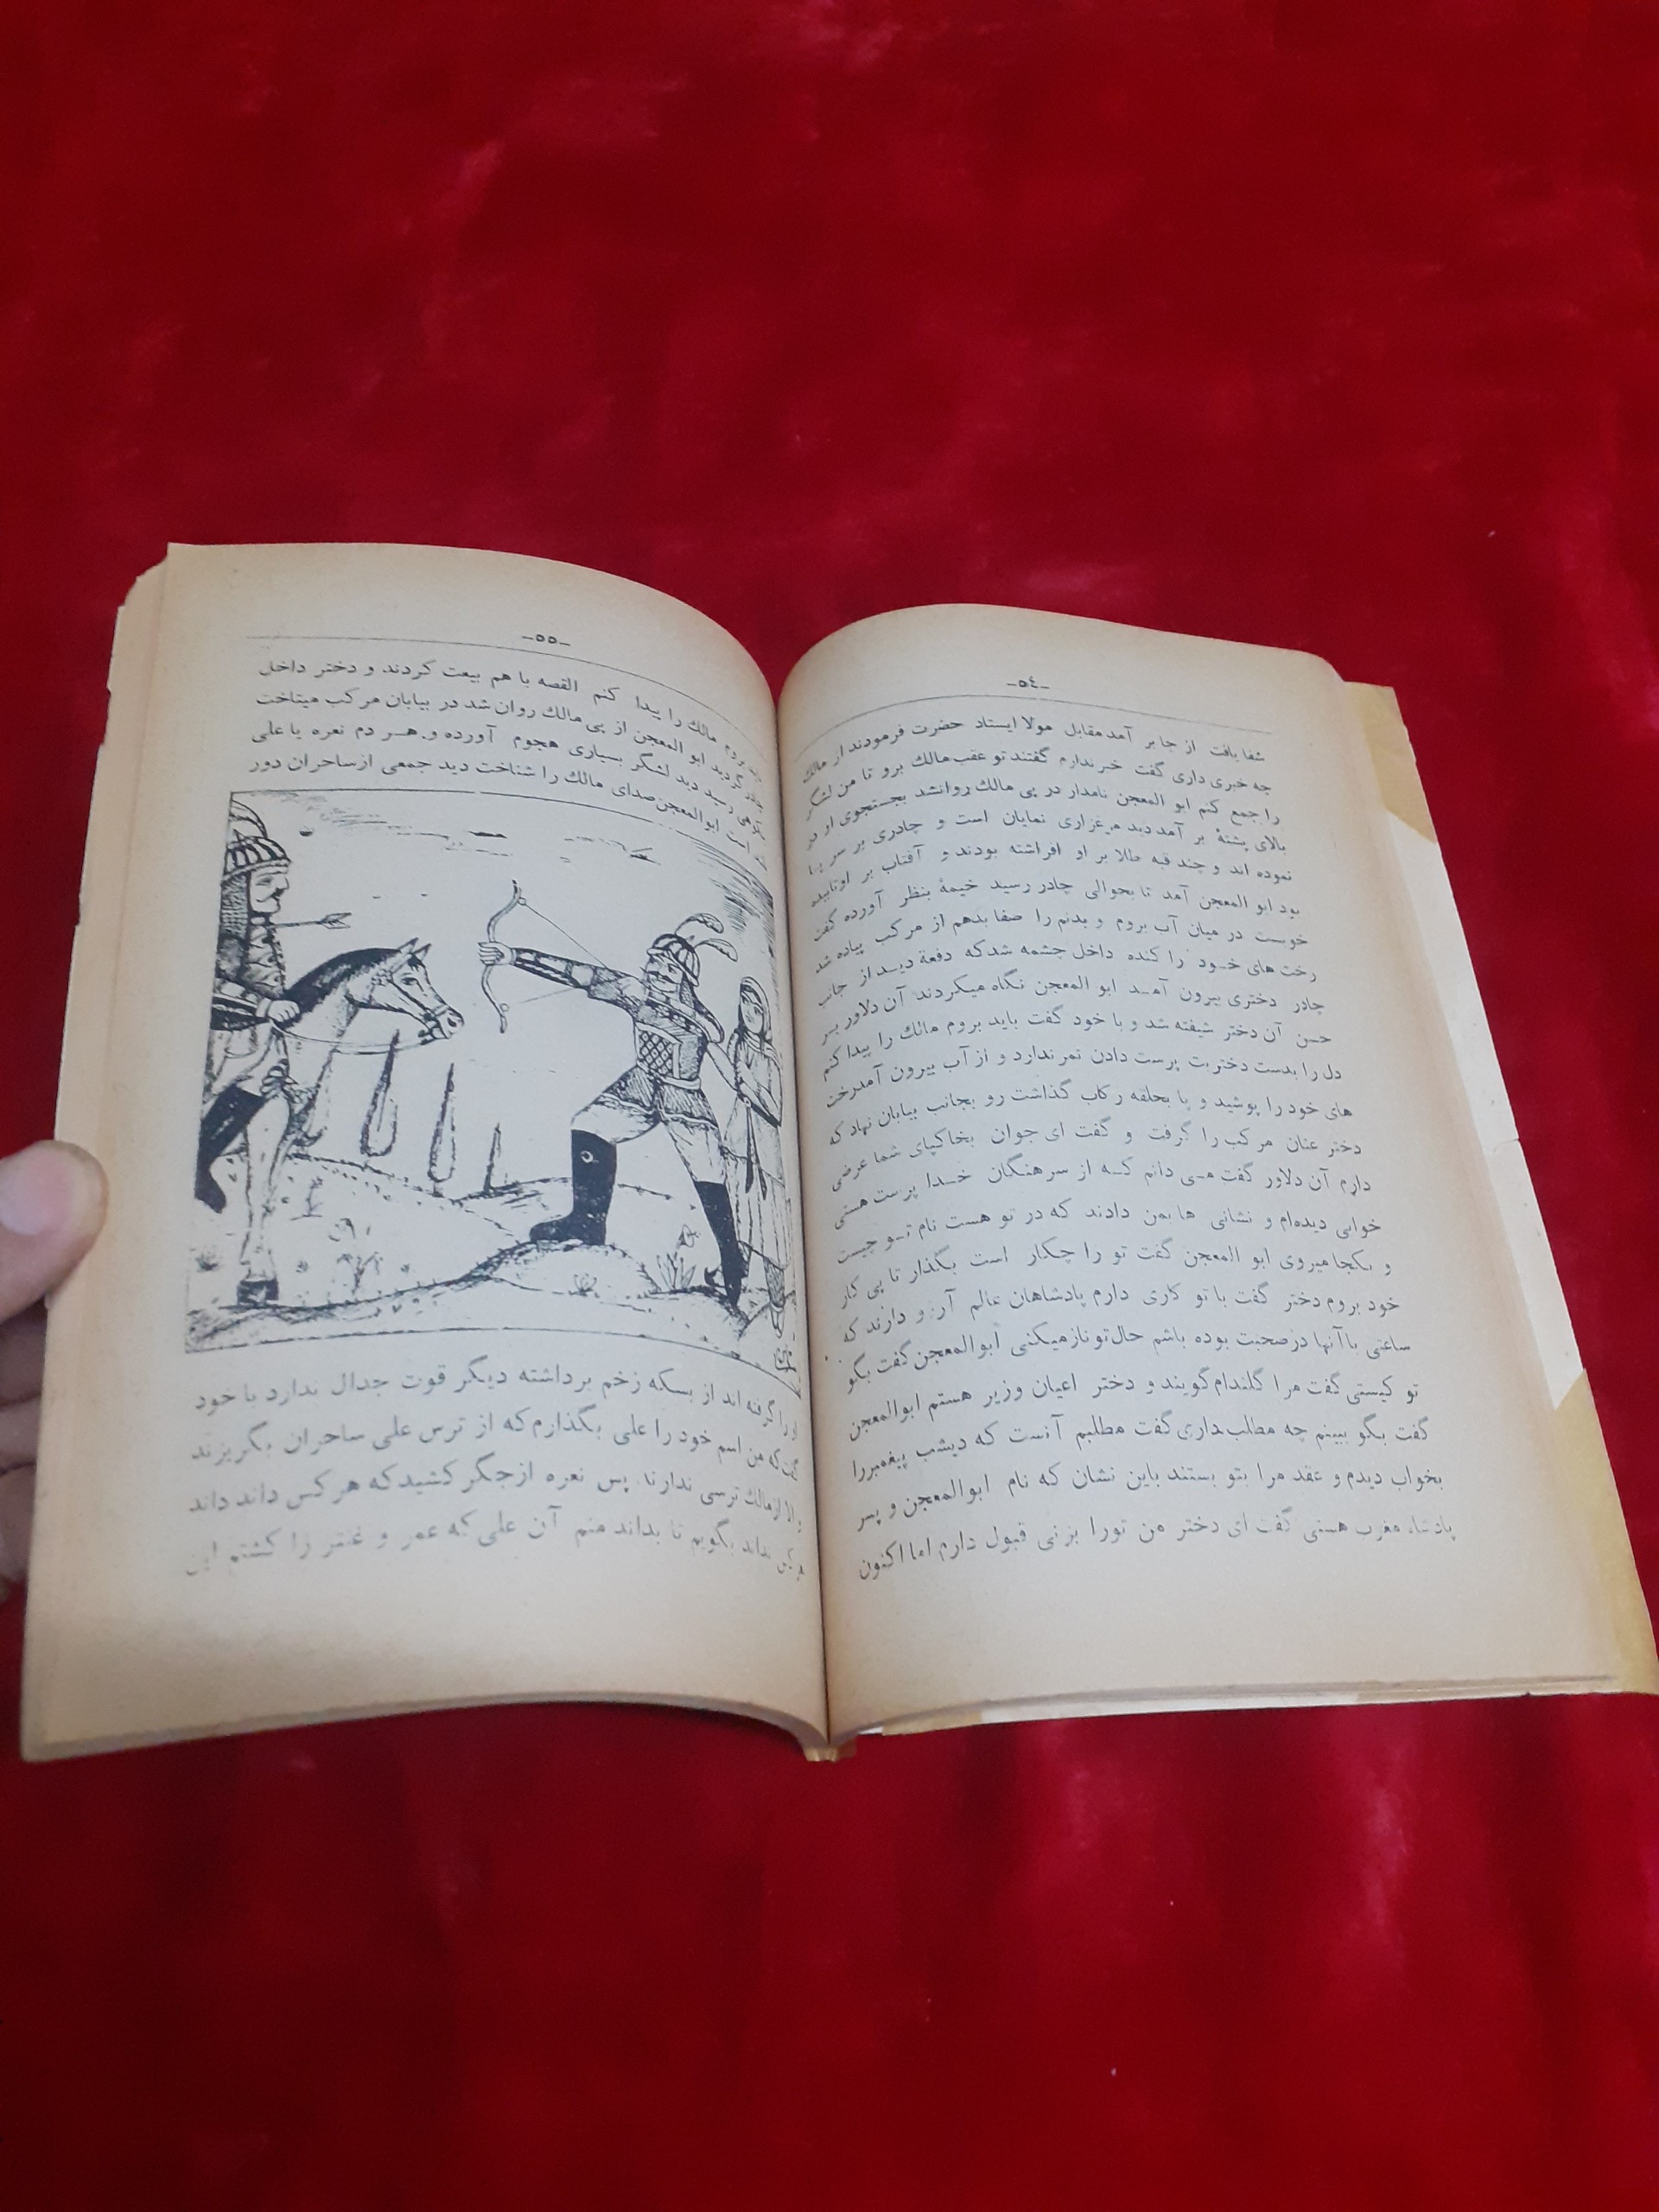 -٥٤-
شفا یافت از جا بر آمد مقابل مولا ایستاد حضرت فرمودند از مالك
چه خبری داری گفت خبر ندارم گفتند تو عقب مالك برو تا من لشگر
را جمع کنم ابو المعجن نامدار در پی مالك روانشد بجستجوی او در
بالای پشتهٔ بر آمد دید مرغزاری نمایان است و چادری بر سر پا
نموده اند و چند قبه طلا بر او افراشته بودند و آفتاب بر او تابیده
بود ابو المعجن آمد تا بحوالی چادر رسید خیمهٔ بنظر آورده گفت
خوبست در میان آب بروم و بدنم را صفا بدهم از مرکب پیاده شد
رخت های خود را کنده داخل چشمه شد که دفعة دید از جانب
چادر دختری بیرون آمد ابو المعجن نگاه میکردند آن دلاور بر
حسن آن دختر شیفته شد و با خود گفت باید بروم مالك را پیدا کنم
دل را بدست دختر بت پرست دادن ثمر ندارد و از آب بیرون آمد رخت
های خود را پوشید و پا بحلقه رکاب گذاشت رو بجانب بیابان نهاد که
دختر عنان مرکب را گرفت و گفت ای جوان بخاکپای شما عرضی
دارم آن دلاور گفت می دانم که از سرهنگان خدا پرست هستی
خوابی دیده‌ام و نشانی ها بمن دادند که در تو هست نام تو چیست
و بکجا میروی ابو المعجن گفت تو را چکار است بگذار تا پی کار
خود بروم دختر گفت با تو کاری دارم پادشاهان عالم آرزو دارند که
ساعتی با آنها در صحبت بوده باشم حال تو ناز میکنی ابو المعجن گفت بگو
تو کیستی گفت مرا گلندام گویند و دختر اعیان وزیر هستم ابوالمعجن
گفت بگو ببینم چه مطلب داری گفت مطلبم آنست که دیشب پیغمبر را
بخواب دیدم و عقد مرا بتو بستند باین نشان که نام ابوالمعجن و پسر
پادشاه مغرب هستی گفت ای دختر من تورا بزنی قبول دارم اما اکنون
-٥٥-
باید بروم مالك را پیدا کنم القصه با هم بیعت کردند و دختر داخل
چادر گردید ابو المعجن از پی مالك روان شد در بیابان مرکب میتاخت
رسید دید لشگر بسیاری هجوم آورده و هر دم نعره یا علی
است ابوالمعجن صدای مالك را شناخت دید جمعی از ساحران دور
او را گرفته اند از بسکه زخم برداشته دیگر قوت جدال ندارد با خود
گفت که من اسم خود را علی بگذارم که از ترس علی ساحران بگریزند
و الا از مالك ترسی ندارند پس نعره از جگر کشید که هر کس داند داند
هر کس نداند بگویم تا بداند منم آن علی که عمر و عنتر را کشتم این